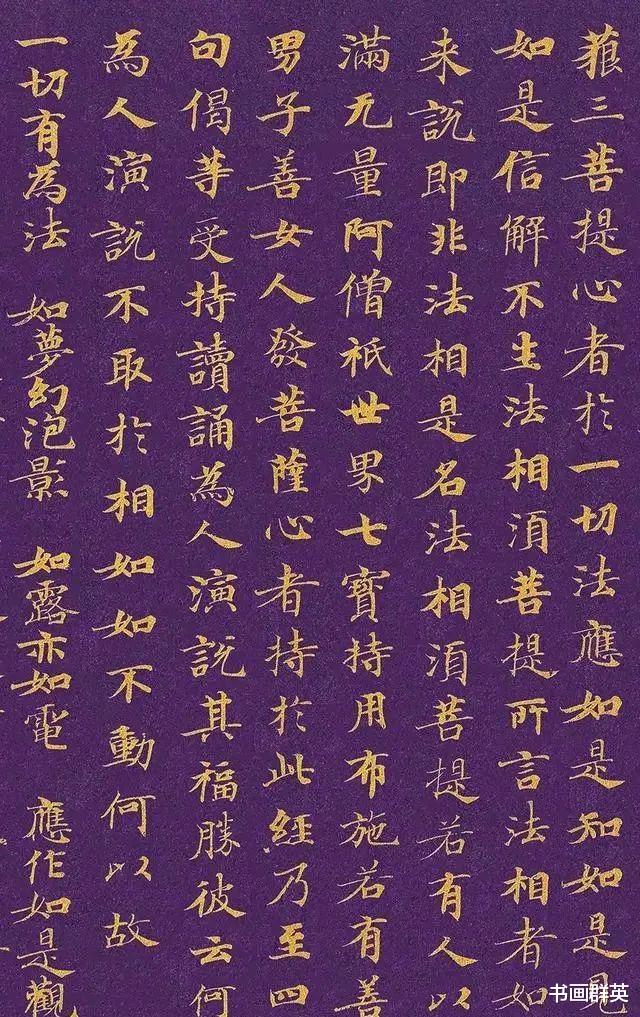 藐三菩提心者於一切法應如是知如是見
如是信解不生法相須菩提所言法相者如
来說即非法相是名法相須菩提若有人以
滿无量阿僧祇世界七寶持用布施若有善
男子善女人發菩薩心者持於此經乃至四
句偈等受持讀誦為人演説其福勝彼云何
為人演説不取於相如如不動何以故
一切有為法 如夢幻泡影 如露亦如電 應作如是觀
书画群英